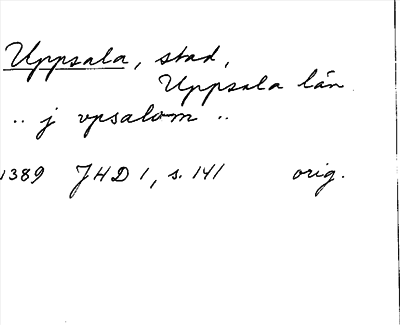 Uppsala, stad,
Uppsala län
.. j vpsalom ..
1389 JHD 1, s. 141 orig.